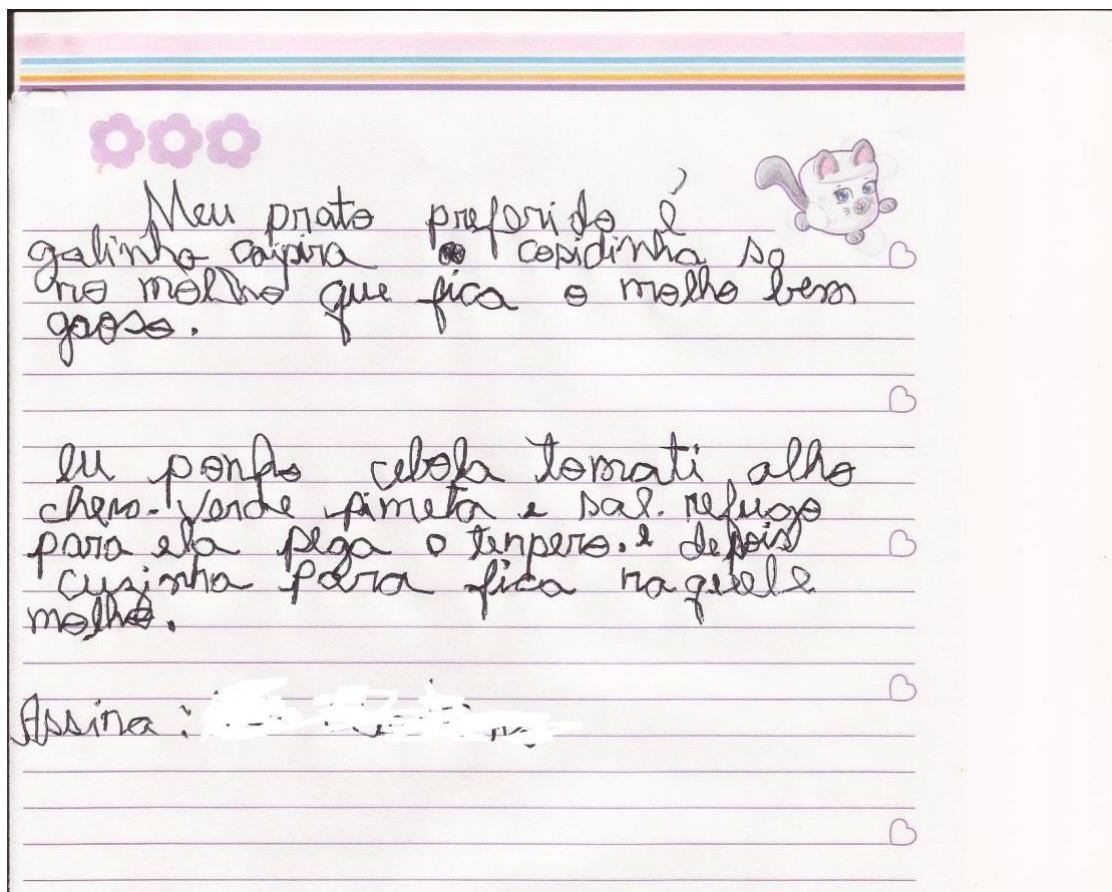 Meu prato preferido é
galinha caipira cosidinha so
no molho que fica o molho bem
gaoso.
Eu ponho cebola tomati alho
chero-verde pimeta e sal. refugo
para ela pega o tenpero. e depois
cusinha para fica naquele
molho.
Assina: